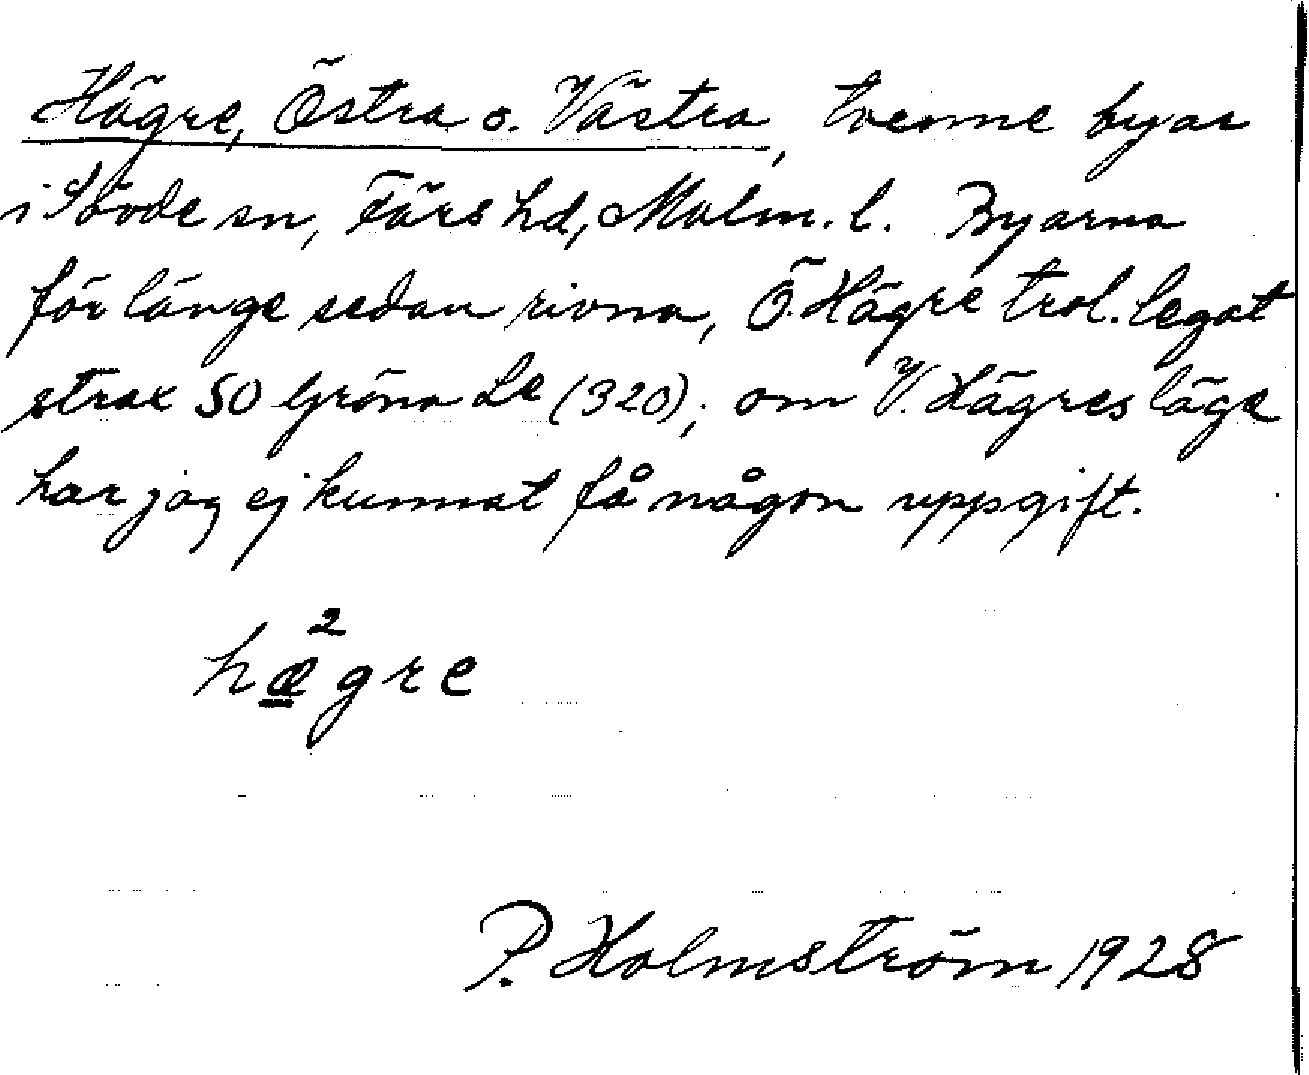 Hägre, Östra o. Västra, tvenne byar
i Sövde sn, Färs hd, Malm. l. Byarna
för länge sedan rivna, Ö. Hägre trol. legat
strax SO Gröna Le (320); om V. Hägres läge
har jag ej kunnat få någon uppgift.
2
hægre
P. Holmström 1928